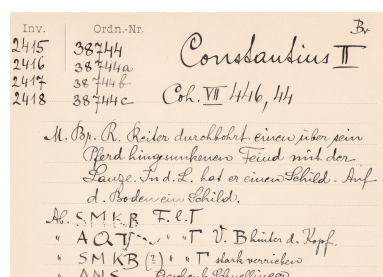 Inv. Ordn.-Nr. Br
2415 38744 Constantius II
2416 38744a
2417 38744b
2418 38744c Coh. VII 446, 44
M. Br. R. Reiter durchbohrt einen über sein
Pferd hingesunkenen Feind mit der
Lanze. In d. L. hat er einen Schild. Auf
d. Boden ein Schild.
Ab. S M K B F.l.Γ
" " " Γ V. B hinter d. Kopf.
" S M K B (?) " " Γ stark verrieben
" A N S